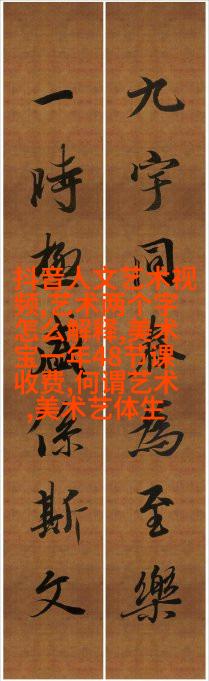 九宇為至樂
一時盛係斯文
抖音人文艺术视
频,艺术两个字
怎么解释,美术
宝一年48节课
收费,何谓艺术
,美术艺体生